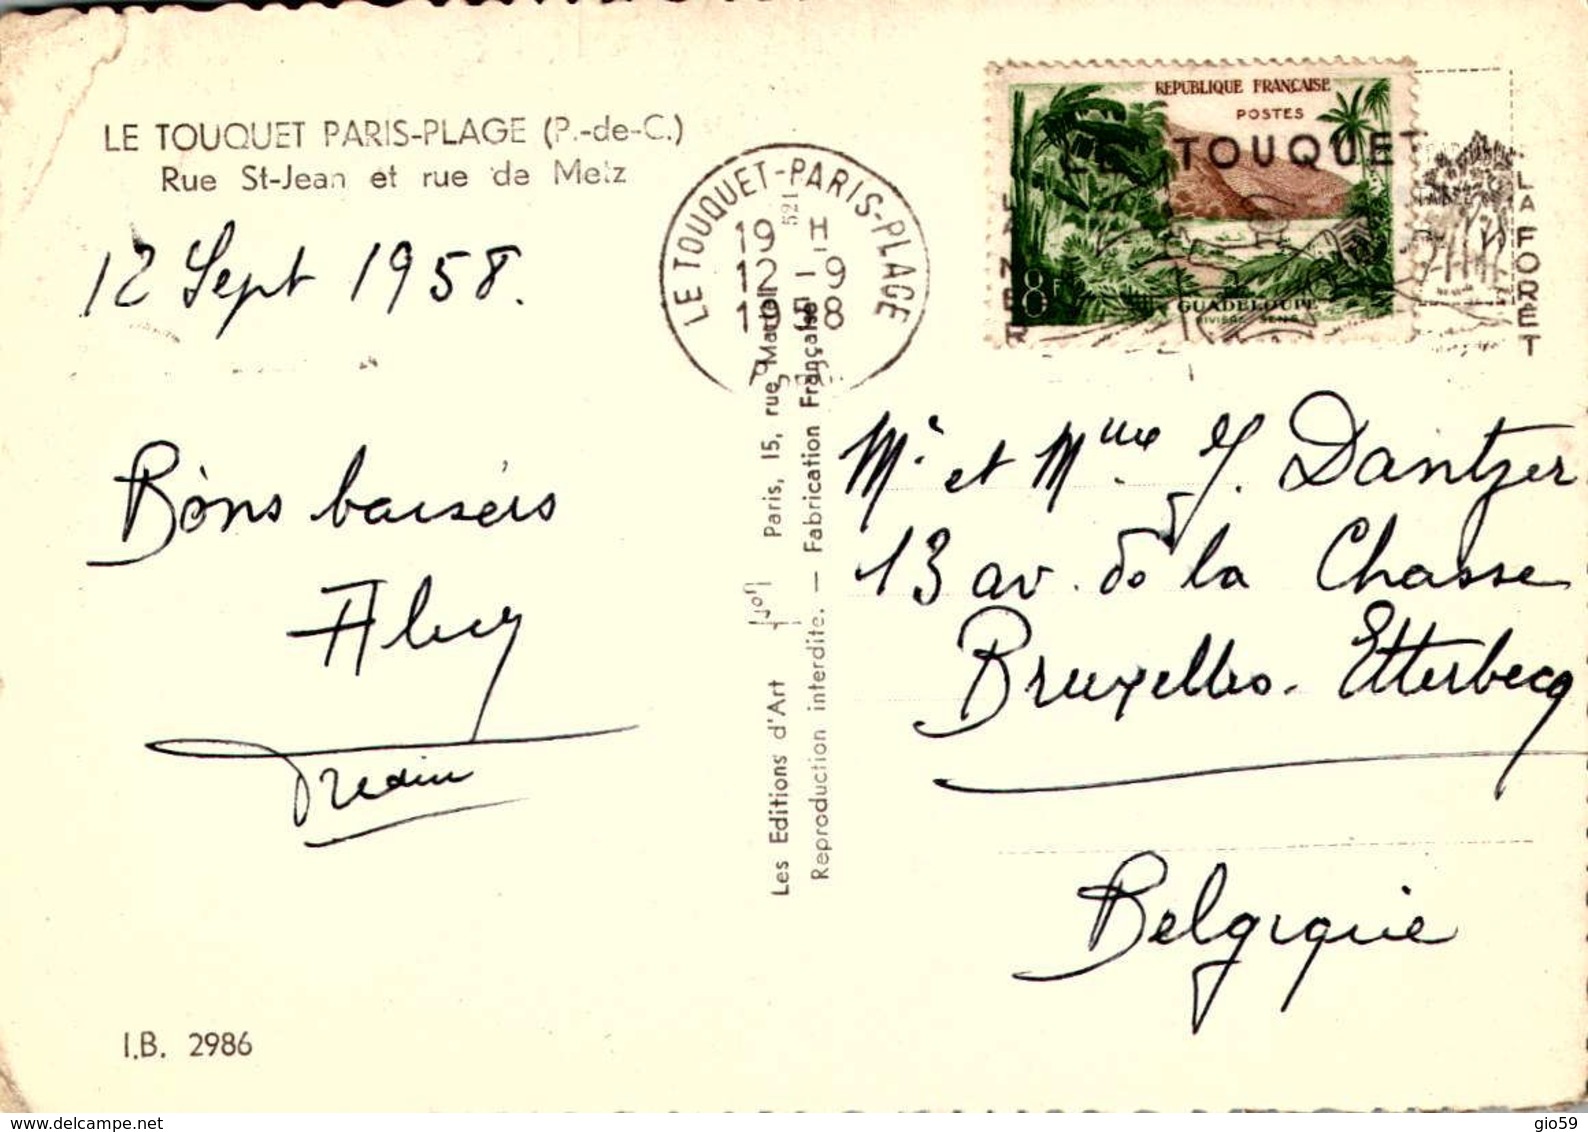 LE TOUQUET PARIS-PLAGE (P.-de-C.)
Rue St-Jean et rue de Metz
12 Sept 1958.
Bons baisers
I.B. 2986
Les Editions d'Art Yvon Paris, 15, rue Martel
Reproduction interdite. — Fabrication Française
521
LE TOUQUET-PARIS-PLAGE
19 H
12 - 9
1958
REPUBLIQUE FRANÇAISE
POSTES
8F
GUADELOUPE
RIVIÈRE SENS
LE TOUQUET
LA MER
LA FORET
Mr et Mme J. Dantzer
13 av. de la Chasse
Bruxelles. Etterbecq
Belgique
delcampe.net
gio59